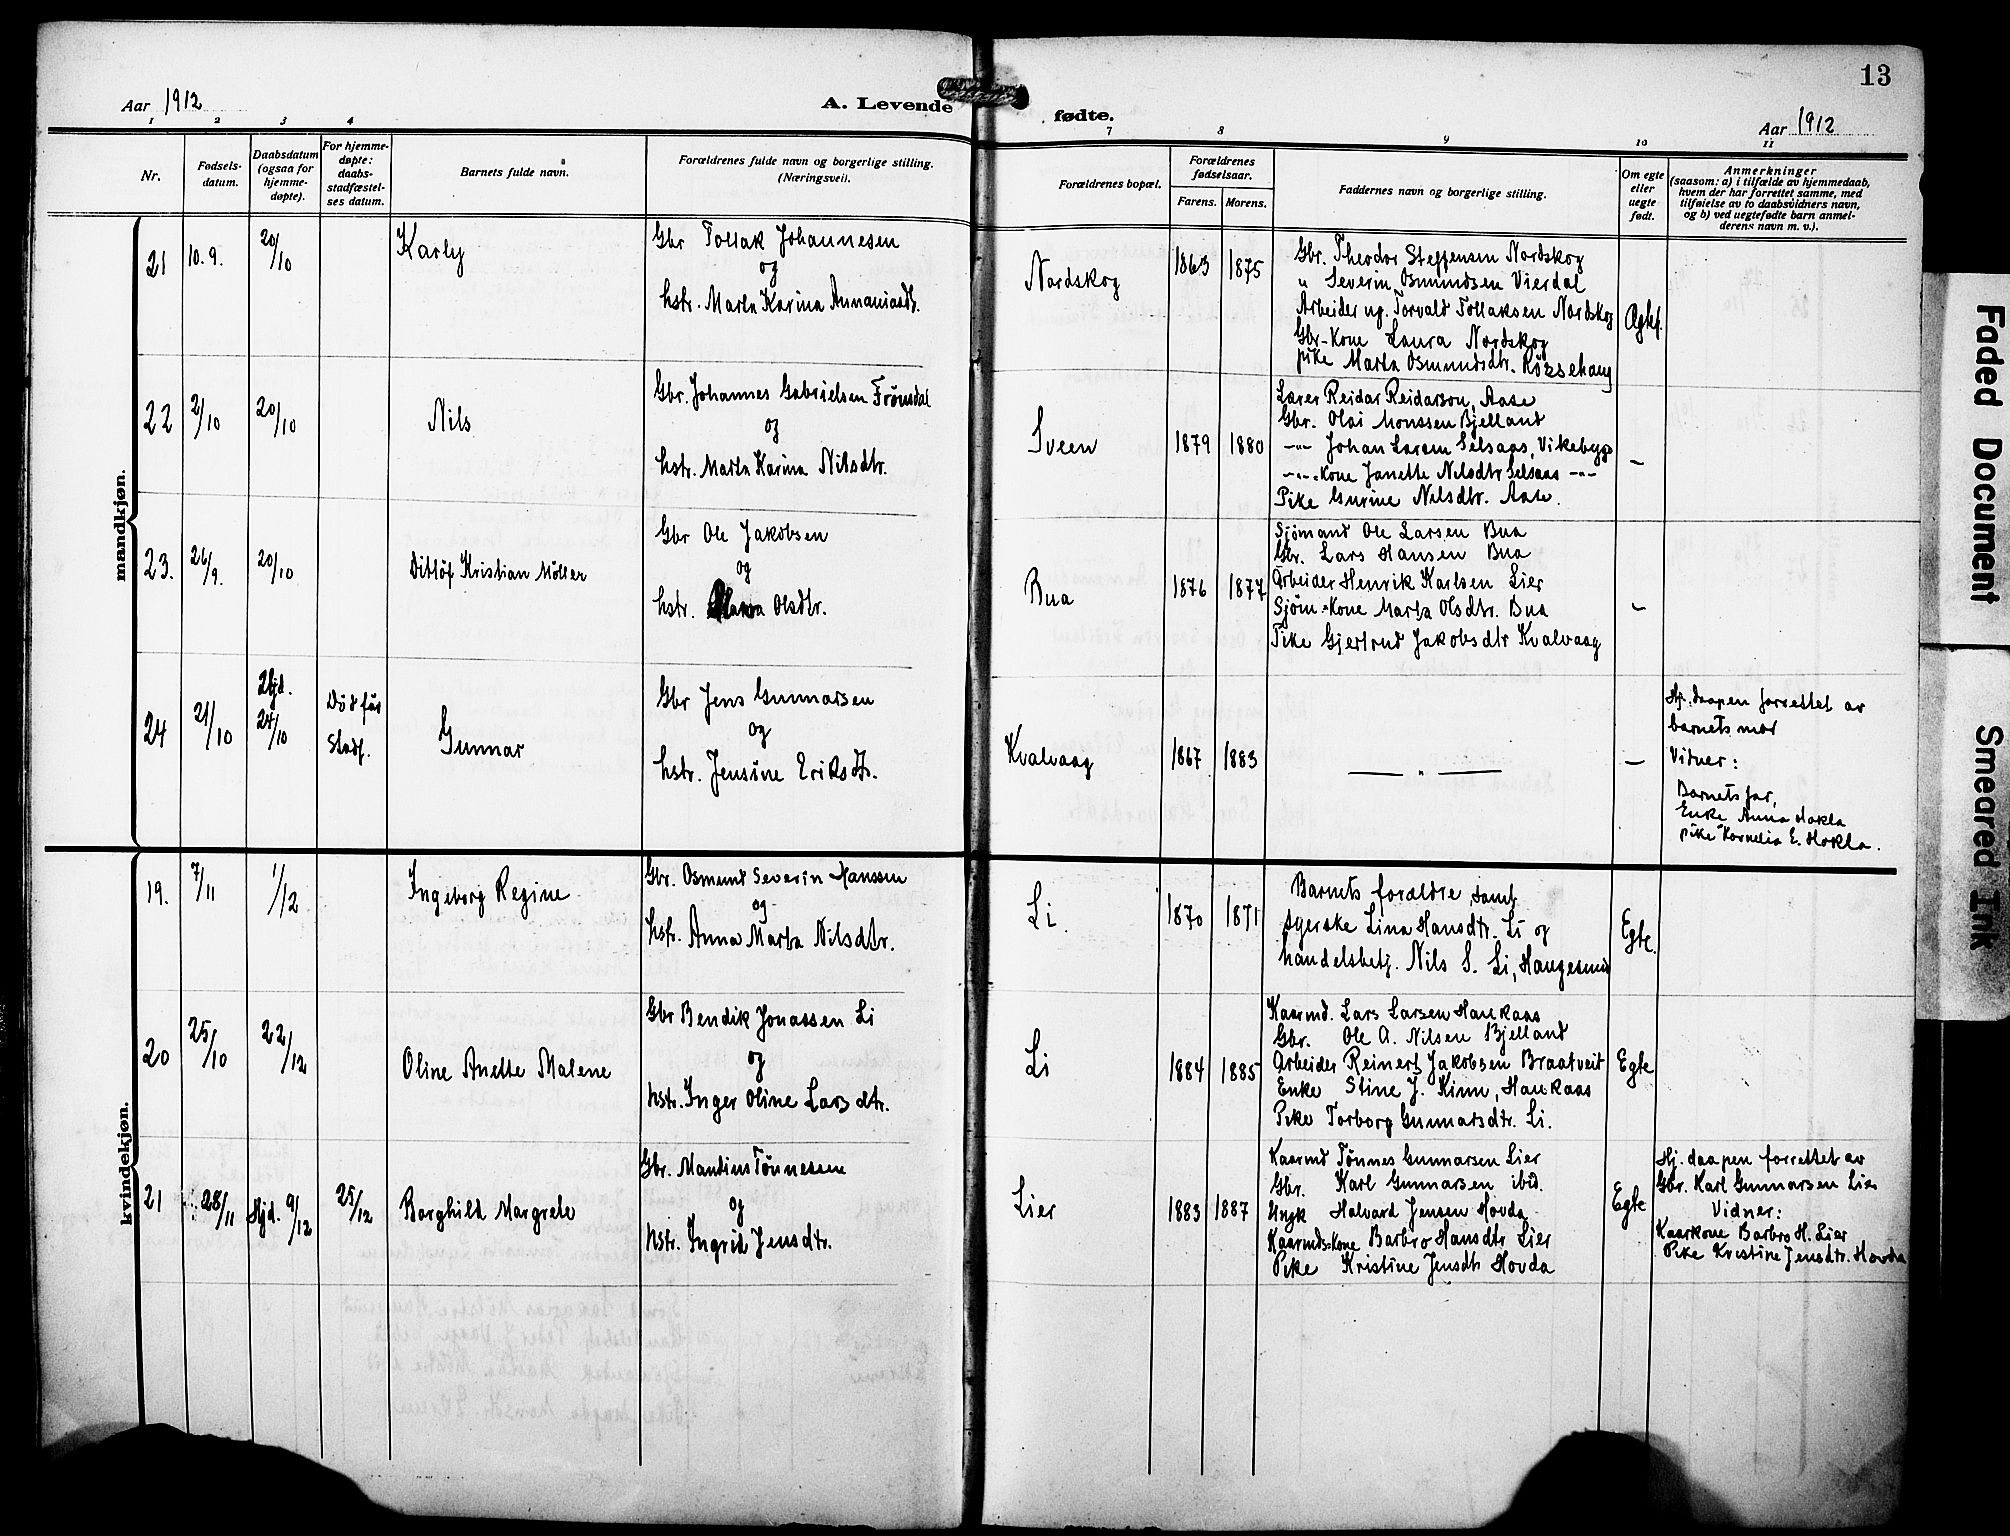 Aar 1912
A. Levende
1 2 3 4
Nr.
Fødsels-
datum.
Daabsdatum
(ogsaa for
hjemme-
døpte).
For hjemme-
døpte:
daabs-
stadfæstel-
ses datum.
Barnets fulde navn.
Forældrenes fulde navn og borgerlige stilling.
(Næringsvei).
mandkjøn.
21 10.9. 20/10 Karly
Gbr Tollak Johannesen
og
hstr. Marta Karina Annaniasdt.
22 2/10 20/10 Nils
Gbr. Johannes Gabrielsen Frønsdal
og
hstr. Marta Karina Nilsdtr.
23. 26/9. 20/10 Ditlöf Kristian Möller
Gbr Ole Jakobsen
og
hstr. Olsdtr.
24 21/10 Hjd. 24/10 Död för Stadf. Gunnar
Gbr Jens Gunnarsen
og
hstr. Jensine Eriksdtr.
kvindekjøn.
19. 7/11 1/12 Ingeborg Regine
Gbr. Osmund Severin Hanssen
og
hstr. Anna Marta Nilsdtr.
20 25/10 22/12 Oline Anette Malene
Gbr Bendik Jonassen Li
og
hstr. Inger Oline Larsdtr.
21 28/11 Hjd. 9/12 25/12 Borghild Margrete
Gbr. Mandius Tönnessen
og
hstr. Ingrid Jensdtr.
13
fødte.
Aar 1912
7 8 9 10 11
Forældrenes bopæl.
Forældrenes
fødselsaar.
Farens. Morens.
Faddernes navn og borgerlige stilling.
Om egte
eller
uegte
født.
Anmerkninger
(saasom: a) i tilfælde av hjemmedaab,
hvem der har forrettet samme, med
tilføielse av to daabsvidners navn,
og b) ved uegtefødte barn anmel-
derens navn m. v.).
Nordskog 1863 1875
Gbr. Theodor Steffensen Nordskog
" Severin Osmundsen Vierdal
Arbeider ug. Torvald Tollaksen Nordskog
Gbr-Kone Laura Nordskog
pike Marta Osmundsdtr.
Sveen 1879 1880
Lærer Reidar Reidarson, Aase
Gbr. Olai Monssen Bjelland
-"- Johan Larsen Selsaas, Vikebygd
-"- Kone Janette Nilsdtr Selsaas -"-
Pike Gurine Nilsdtr. Aase.
Bua 1876 1877
Sjömand Ole Larsen Bua
Gbr. Lars Hansen Bua
Arbeider Henrik Karlsen Lier
Sjöm.-Kone Marta Olsdtr. Bua
Pike Gjertrud Jakobsdtr Kvalvaag
Kvalvaag 1867 1883 — " —
Hj. daapen forrettet av
barnets mor
Vidner:
Barnets far,
Enke Anna Hokla
pike Kornelia E. Hokla.
Li. 1870 1871
Barnets forældre samt
syerske Lina Hansdtr. Li og
handelsbetj. Nils S. Li, Haugesund
Egte.
Li 1884 1885
Kaarmd. Lars Larsen Haukaas
Gbr. Ole A. Nilsen Bjelland
Arbeider Reinert Jakobsen Braatveit
Enke Stine J. Kinn, Haukaas
Pike Torborg Gunnarsdtr. Li.
Egte
Lier 1883 1887
Kaarmd Tönnes Gunnarsen Lier
Gbr. Karl Gunnarsen ibid.
Ungk Halvard Jensen Hovda
Kaarmds-Kone Barbro Hansdtr Lier
Pike Kristine Jensdtr Hovda
Egte
Hj. daapen forrettet av
Gbr. Karl Gunnarsen Lier
Vidner:
Kaarkone Barbro H. Lier
Pike Kristine Jensdtr. Hovda
Faded Document
Smeared Ink